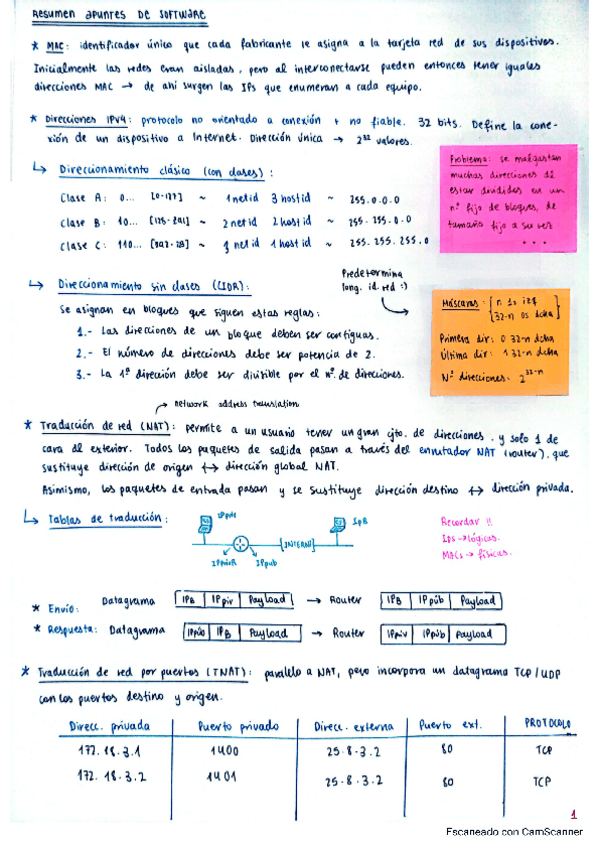 Resumen apuntes DE SOFTWARE
* MAC: identificador único que cada fabricante le asigna a la tarjeta red de sus dispositivos.
Inicialmente las redes eran aisladas, pero al interconectarse pueden entonces tener iguales
direcciones MAC → de ahí surgen las IPs que enumeran a cada equipo.
* Direcciones IPv4: protocolo no orientado a conexión + no fiable. 32 bits. Define la cone-
xión de un dispositivo a Internet. Dirección única → 2³² valores.
↳ Direccionamiento clásico (con clases):
Clase A: 0... [0-127] ~ 1 netid 3 hostid ~ 255.0.0.0
Clase B: 10... ~ 2 netid 2 hostid ~ 255.255.0.0
Clase C: 110... ~ 3 netid 1 hostid ~ 255.255.255.0
Problema: se malgastan
muchas direcciones al
estar divididas en un
nº fijo de bloques, de
tamaño fijo a su vez
...
↳ Direccionamiento sin clases (CIDR):
Predetermina
long. id. red :)
Se asignan en bloques que siguen estas reglas:
1.- Las direcciones de un bloque deben ser contiguas.
2.- El número de direcciones debe ser potencia de 2.
3.- La 1ª dirección debe ser divisible por el nº de direcciones.
Máscaras: { n 1s izq
32-n 0s dcha }
Primera dir: 0 32-n dcha
Última dir: 1 32-n dcha
Nº direcciones: 2³²⁻ⁿ
→ network address translation
* Traducción de red (NAT): permite a un usuario tener un gran cjto. de direcciones. y solo 1 de
cara al exterior. Todos los paquetes de salida pasan a través del enrutador NAT (router), que
sustituye dirección de origen ↔ dirección global NAT.
Asimismo, los paquetes de entrada pasan y se sustituye dirección destino ↔ dirección privada.
↳ Tablas de traducción:
IpB
[INTERNET]
IPprivR IPpub
Recordar !!
Ips → lógicas.
MACs → físicas.
* Envío: Datagrama IPB | IPpir | Payload → Router IPB | IPpúb | Payload
* Respuesta: Datagrama IPpúb | IPB | Payload → Router IPpriv | IPpúb | Payload
* Traducción de red por puertos (TNAT): paralelo a NAT, pero incorpora un datagrama TCP/UDP
con los puertos destino y origen.
Direcc. privada | Puerto privado | Direcc. externa | Puerto ext. | PROTOCOLO
172.18.3.1 | 1400 | 25.8.3.2 | 80 | TCP
172.18.3.2 | 1401 | 25.8.3.2 | 80 | TCP
1
Escaneado con CamScanner